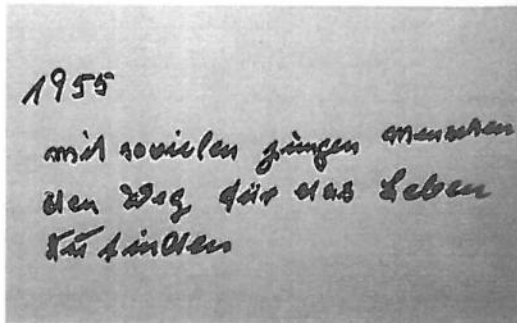 1955
mit sovielen jungen menschen
den Weg für das Leben
zu finden